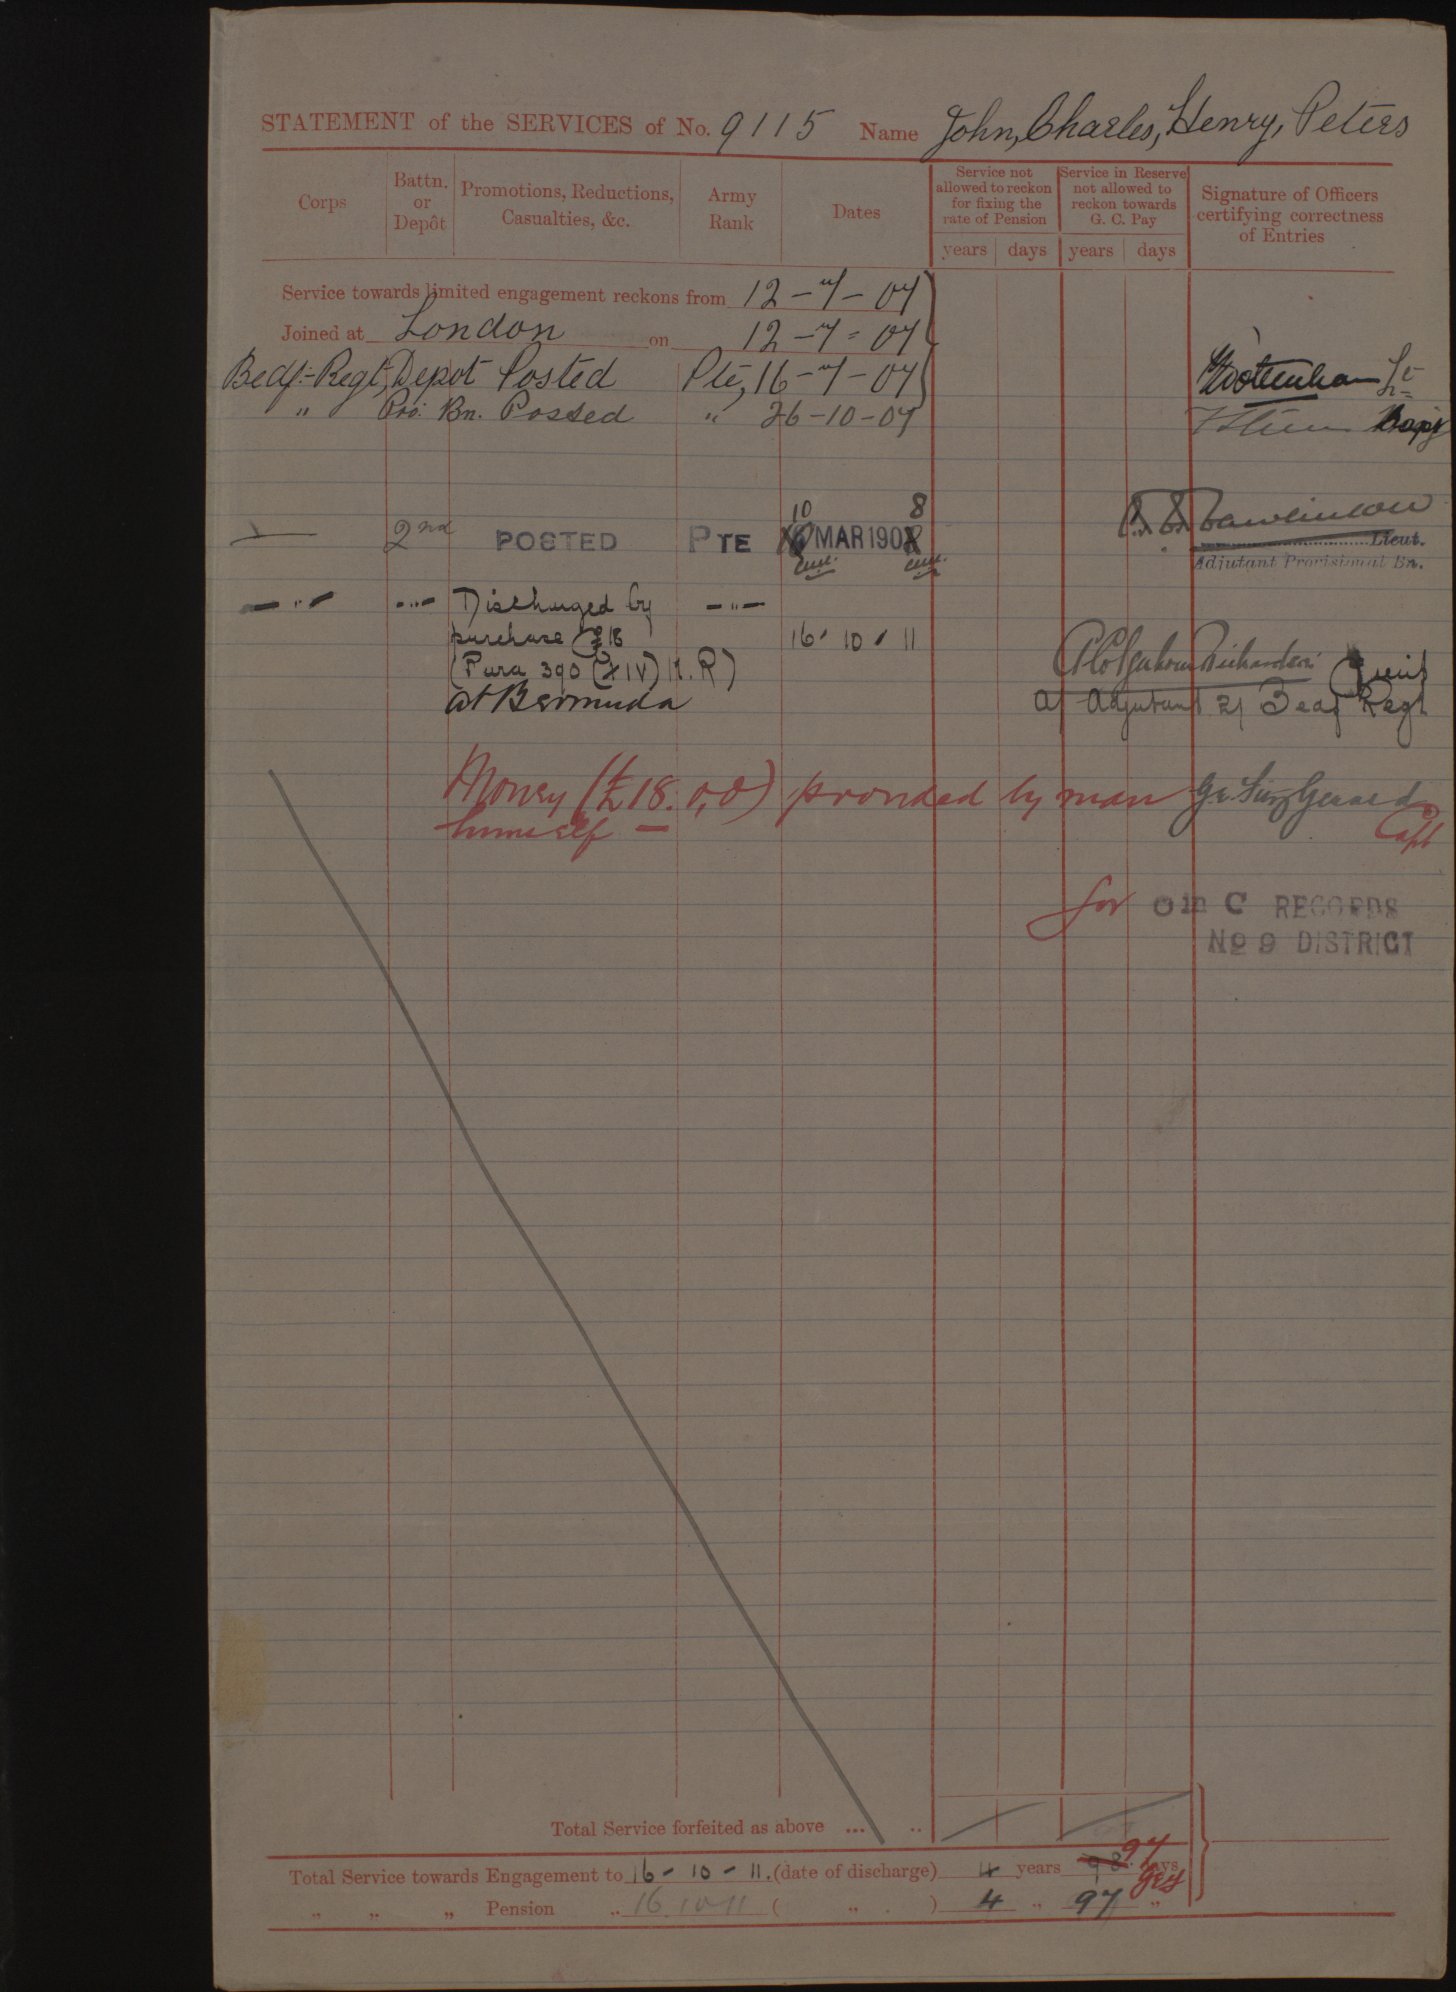 STATEMENT of the SERVICES of No. 9115 Name John, Charles, Henry, Peters
Corps
Battn. or Depôt
Promotions, Reductions, Casualties, &c.
Army Rank
Dates
Service not allowed to reckon for fixing the rate of Pension
Service in Reserve not allowed to reckon towards G. C. Pay
Signature of Officers certifying correctness of Entries
years days years days
Service towards limited engagement reckons from 12-7-07
Joined at London on 12-7-07
Bedf:-Regt, Depot Posted Pte, 16-7-07
" Pro: Bn. Posted " 26-10-07 Capt
2nd POSTED PTE 10 MAR 1908
Lieut.
Adjutant Provisional Bn.
-"- -"- Discharged by -"-
purchase £18 16·10·11
(Para 390 (XIV) K.R)
at Bermuda
a/ Adjutant 2/ Bedf Regt
Money (£18.0.0) provided by man
himself — Capt
for O in C RECORDS
No 9 DISTRICT
Total Service forfeited as above ... ..
Total Service towards Engagement to 16-10-11. (date of discharge) 4 years 98 97 days
" " " Pension " 16.10.11 ( " ) 4 " 97 "